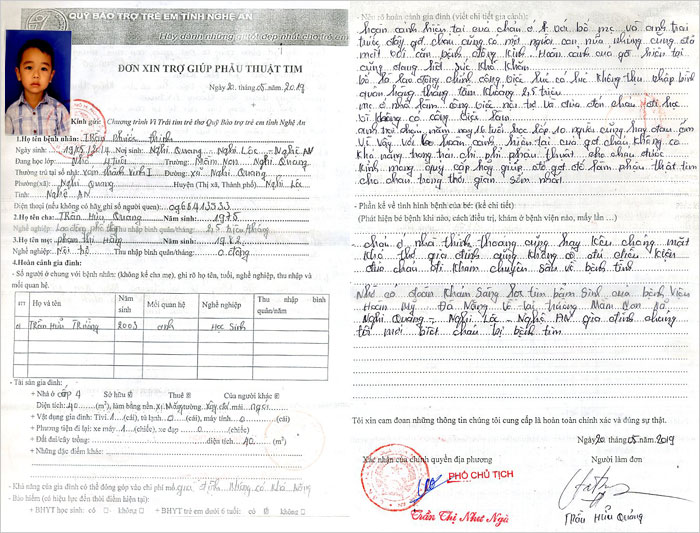 QUỸ BẢO TRỢ TRẺ EM TỈNH NGHỆ AN
Hãy dành những gì tốt đẹp nhất cho trẻ em
ĐƠN XIN TRỢ GIÚP PHẪU THUẬT TIM
Ngày 20 tháng 05 năm 2019
Kính gửi: Chương trình Vì Trái tim trẻ thơ Quỹ Bảo trợ trẻ em tỉnh Nghệ An
1.Họ tên bệnh nhân: Trần Phước Thịnh
Ngày sinh: 19/05/2014 Nơi sinh: Nghi Quang - Nghi Lộc - Nghệ AN
Đang học lớp: Nhỡ 4 tuổi Trường: Mầm Non Nghi Quang
Thường trú tại số nhà: xóm thành vinh 1 Đường: xã Nghi Quang
Phường(xã): Nghi Quang Huyện (Thị xã, Thành phố) Nghi Lộc
Tỉnh: Nghệ AN
Điện thoại (nếu không có hãy ghi số người quen): 0968413333
2.Họ tên cha: Trần Hữu Quảng Năm sinh: 1975
Nghề nghiệp: Lao động phổ thông Thu nhập bình quân/tháng: 2,5 triệu/tháng
3.Họ tên mẹ: phạm thị Hằng Năm sinh: 1982
Nghề nghiệp: Nội trợ Thu nhập bình quân/tháng: 0 đồng
4.Hoàn cảnh gia đình:
- Số người ở chung với bệnh nhân: (không kể cha mẹ), ghi rõ họ tên, tuổi, nghề nghiệp, thu nhập và
mối quan hệ.
STT Họ và tên Năm sinh Mối quan hệ Nghề nghiệp Thu nhập bình quân/năm
Trần Hữu 2003 anh Học Sinh
- Tài sản gia đình:
+ Nhà ở cấp 4 Sở hữu Thuê Của người khác
Diện tích: 40 (m²), làm bằng nền: xi măng tường: xây mái: ngói
+ Vật dụng gia đình: Tivi 1 (cái), tủ lạnh 0 (cái), máy tính 0 (cái)
+ Phương tiện đi lại: xe máy 1 (chiếc), xe đạp 0 (chiếc)
+ Đất đai/cây trồng: diện tích 40 (m²)
+ Những đặc điểm khác:
- Khả năng của gia đình có thể đóng góp vào chi phí mổ: gia đình không có khả năng
- Bảo hiểm (có hiệu lực đến thời điểm hiện tại):
- BHYT học sinh: có không + BHYT trẻ em dưới 6 tuổi: có không
- Nêu rõ hoàn cảnh gia đình (viết chi tiết gia cảnh):
Hoàn cảnh hiện tại của cháu ở với bố mẹ và anh trai
trước đây gđ cháu cũng có một người con nữa nhưng cũng đã
mất vì căn bệnh động kinh. Hoàn cảnh của gđ hiện tại
cũng đang hết sức khó khăn
bố là lao động chính công việc lúc có lúc không thu nhập bình
quân hàng tháng tầm khoảng 2,5 triệu
mẹ ở nhà làm công việc nội trợ và đưa đón cháu đi học
vì không có công việc làm
anh trai cháu năm nay 16 tuổi học lớp 10 người cũng hay đau ốm
Vì vậy với hoàn cảnh hiện tại của gđ cháu không có
khả năng trong trải chi phí phẫu thuật cho cháu được
Kính mong quý cấp hãy giúp đỡ gđ để làm phẫu thuật tim
cho cháu trong thời gian sớm nhất
- Phần kể về tình hình bệnh của bé: (kể chi tiết)
(Phát hiện bé bệnh khi nào, cách điều trị, khám ở bệnh viện nào, mấy lần ...)
cháu ở nhà thỉnh thoảng cũng hay kêu chóng mặt
khó thở gia đình cũng không có điều kiện
đưa cháu đi khám chuyên sâu về bệnh tình
Nhờ có đoàn khám sàng lọc tim bẩm sinh của bệnh viện
Hoàn Mỹ Đà Nẵng về tại trường Mầm Non xã
Nghi Quang - Nghi Lộc - Nghệ AN gia đình chúng
tôi mới biết cháu bị bệnh tim
Tôi xin cam đoan những thông tin chúng tôi cung cấp là hoàn toàn chính xác và đúng sự thật.
Ngày 20 tháng 05 năm 2019
Xác nhận của chính quyền địa phương Người làm đơn
PHÓ CHỦ TỊCH
Trần Thị Như Ngà
Trần Hữu Quảng